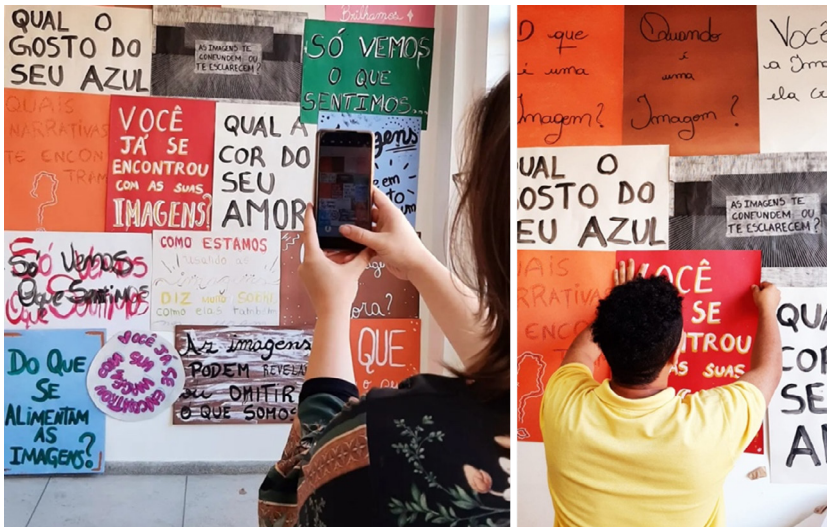 QUAL O
GOSTO DO
SEU AZUL
AS IMAGENS TE
CONFUNDEM OU
TE ESCLARECEM?
Brilhamos
SÓ VEMOS
O QUE
SENTIMOS...
QUAIS
NARRATIVAS
TE ENCON
TRAM
?
VOCÊ
JÁ SE
ENCONTROU
COM AS SUAS
IMAGENS?
QUAL A
COR DO
SEU
AMOR
gens
em
Só Vemos
O que Sentimos
COMO ESTAMOS
imagens
DIZ
como elas também
ora?
DO QUE
SE
ALIMENTAM
AS
IMAGENS?
VOCÊ JÁ SE ENCONTROU
COM SUA
As imagens
PODEM REVELA
ou OMITIR
O QUE SOMOS
QUE
O que
é uma
Imagem?
Quando
é
uma
Imagem?
Você
a Ima
ela
UAL O
OSTO DO
EU AZUL
AS IMAGENS TE
CONFUNDEM OU
TE ESCLARECEM?
UAIS
RRATIVAS
ENCO
OCÊ
SE
TROU
SUAS
QUA
COR
SE
A